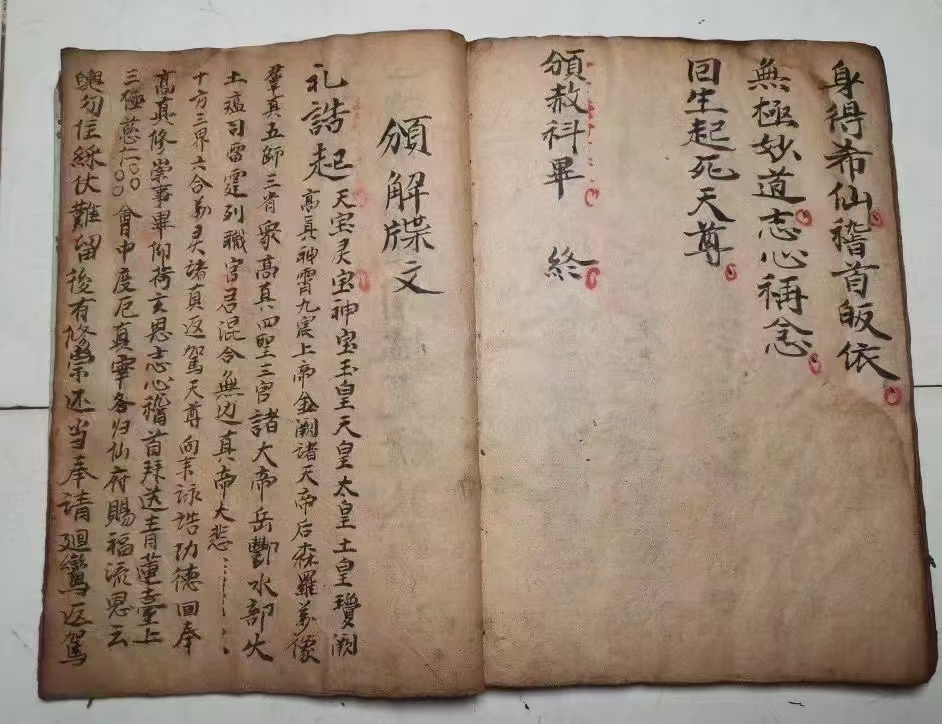 身得希仙稽首皈依
無極妙道志心稱念
囘生起死天尊
頒赦科畢　終
頒解牒文
礼誥起　天宝灵宝神宝玉皇天皇太皇土皇瓊闕
高真神霄九宸上帝金闕諸天帝后森羅萬像
羣真五師三省衆高真四聖三官諸大帝岳酆水部火
土瘟司雷霆列職官君混合無边真帝大悲
十方三界六合萬灵諸真返駕天尊向来詠誥功德回奉
高真修崇事畢仰荷玄恩志心稽首拜送青蓮臺上
三極慈仁〇〇會中度厄真宰各归仙府賜福流恩云
輿勿住綵仗難留後有修崇还当奉請廻鸞返駕